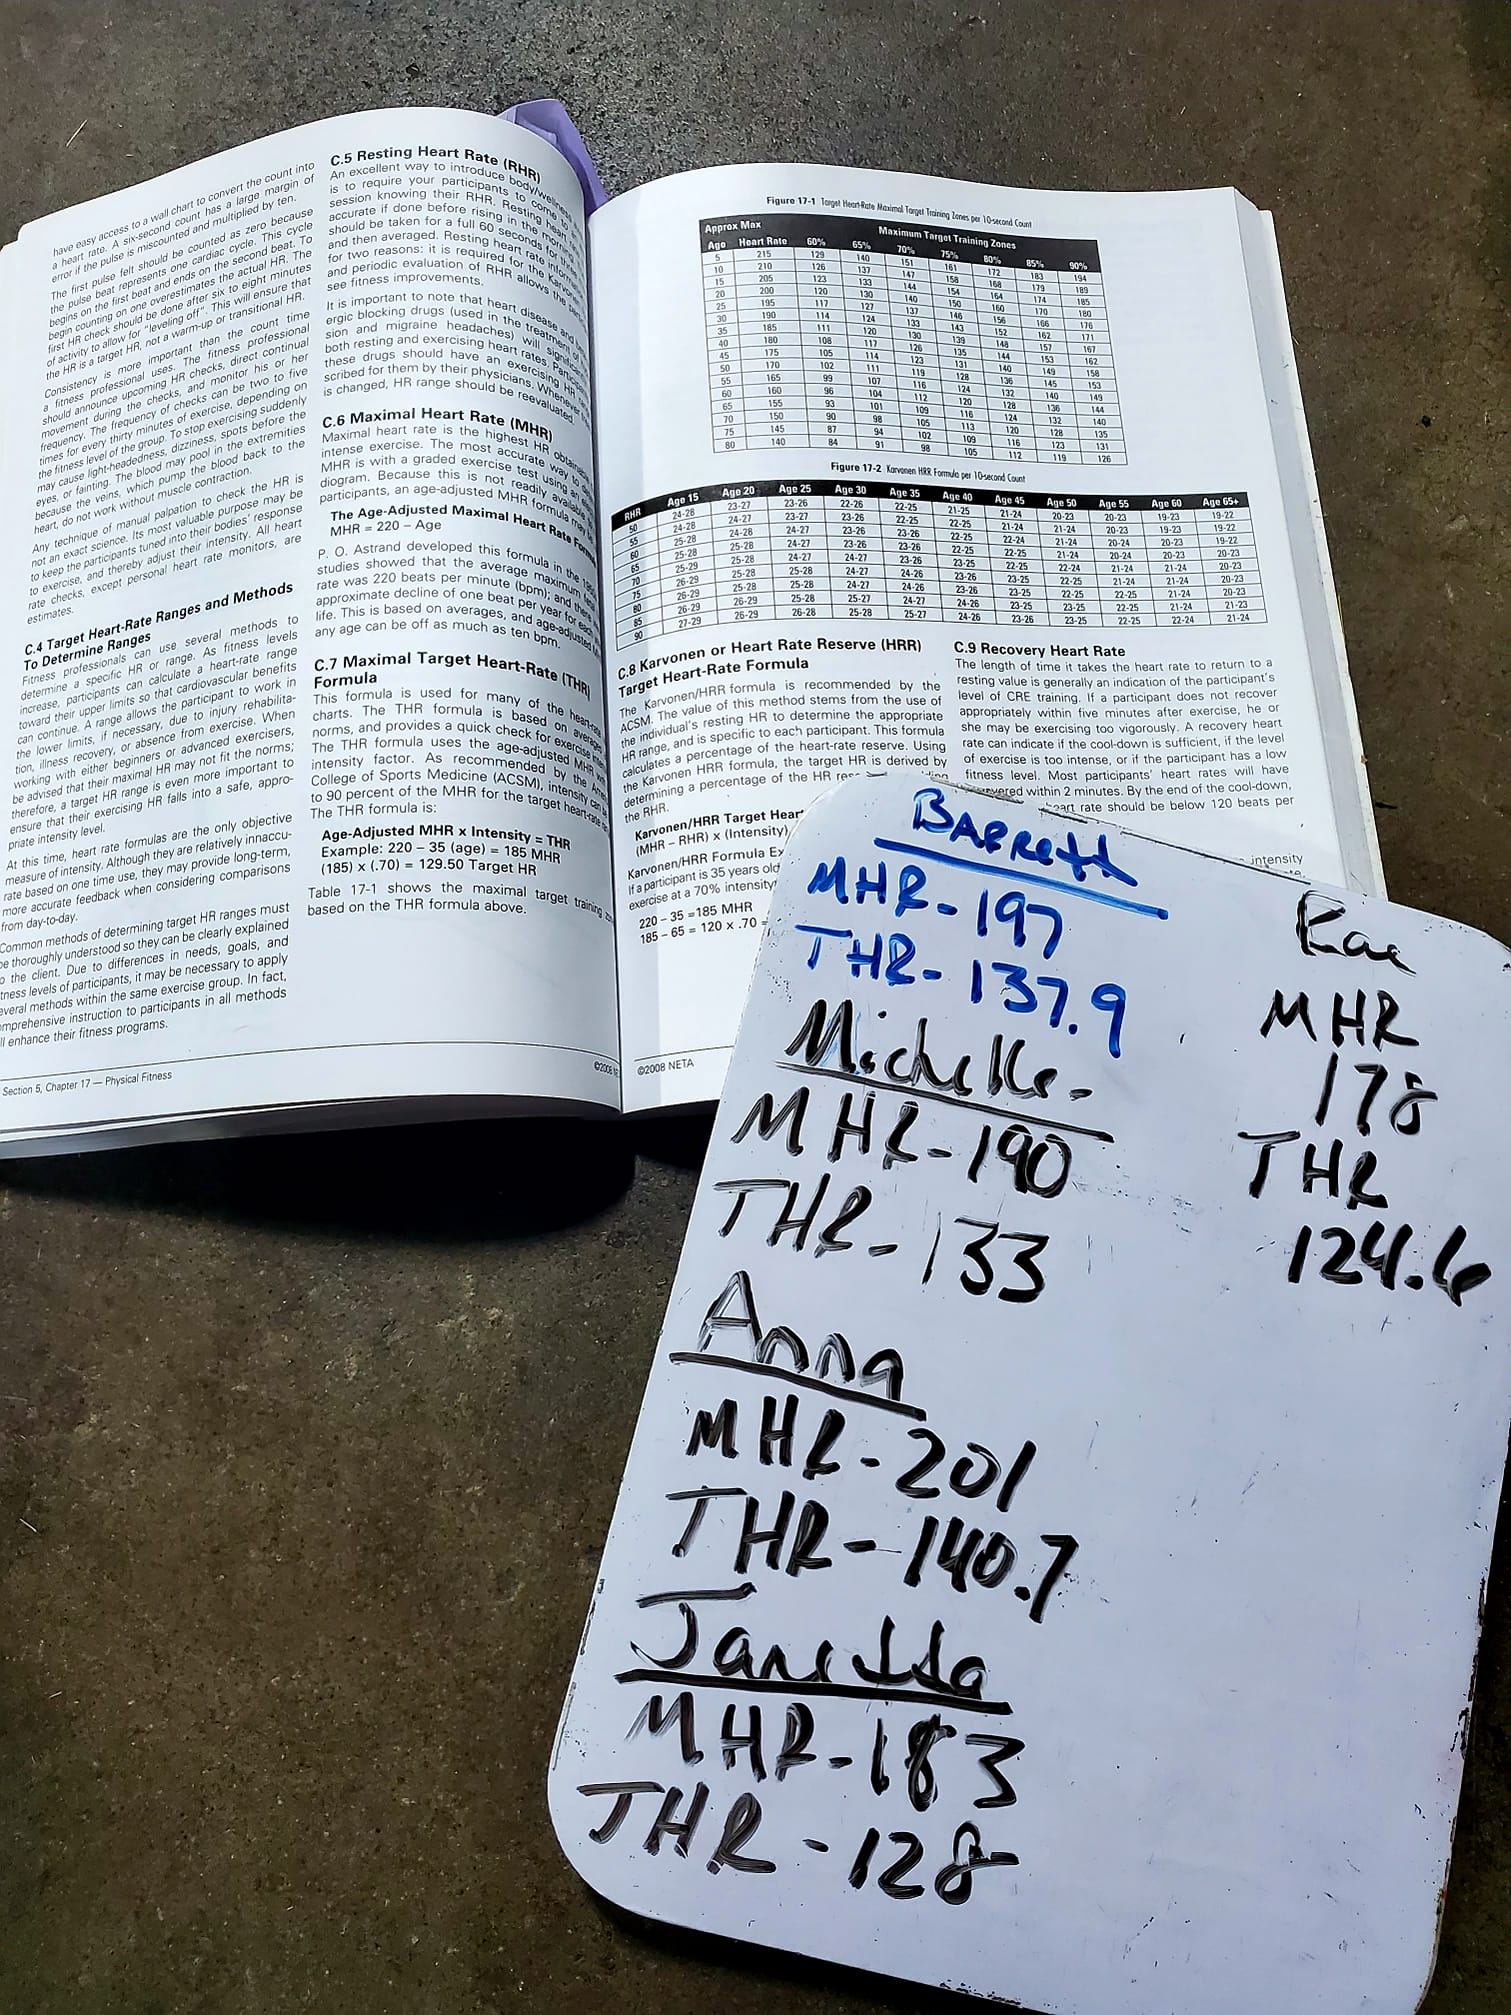 have easy access to a wall chart to convert the count into
a heart rate. A six-second count has a large margin of
error if the pulse is miscounted and multiplied by ten.
The first pulse felt should be counted as zero because
the pulse beat represents one cardiac cycle. This cycle
begins on the first beat and ends on the second beat. To
begin counting on one overestimates the actual HR. The
first HR check should be done after six to eight minutes
of activity to allow for "leveling off". This will ensure that
the HR is a target HR, not a warm-up or transitional HR.
Consistency is more important than the count time
a fitness professional uses. The fitness professional
should announce upcoming HR checks, direct continual
movement during the checks, and monitor his or her
frequency. The frequency of checks can be two to five
times for every thirty minutes of exercise, depending on
the fitness level of the group. To stop exercising suddenly
may cause light-headedness, dizziness, spots before the
eyes, or fainting. The blood may pool in the extremities
because the veins, which pump the blood back to the
heart, do not work without muscle contraction.
Any technique of manual palpation to check the HR is
not an exact science. Its most valuable purpose may be
to keep the participants tuned into their bodies' response
to exercise, and thereby adjust their intensity. All heart
rate checks, except personal heart rate monitors, are
estimates.
C.4 Target Heart-Rate Ranges and Methods
To Determine Ranges
Fitness professionals can use several methods to
determine a specific HR or range. As fitness levels
increase, participants can calculate a heart-rate range
toward their upper limits so that cardiovascular benefits
can continue. A range allows the participant to work in
the lower limits, if necessary, due to injury rehabilita-
tion, illness recovery, or absence from exercise. When
working with either beginners or advanced exercisers,
be advised that their maximal HR may not fit the norms;
therefore, a target HR range is even more important to
ensure that their exercising HR falls into a safe, appro-
priate intensity level.
At this time, heart rate formulas are the only objective
measure of intensity. Although they are relatively innaccu-
rate based on one time use, they may provide long-term,
more accurate feedback when considering comparisons
from day-to-day.
Common methods of determining target HR ranges must
be thoroughly understood so they can be clearly explained
to the client. Due to differences in needs, goals, and
fitness levels of participants, it may be necessary to apply
several methods within the same exercise group. In fact,
comprehensive instruction to participants in all methods
ll enhance their fitness programs.
Section 5, Chapter 17 — Physical Fitness
C.5 Resting Heart Rate (RHR)
An excellent way to introduce body/wellness
is to require your participants to come
session knowing their RHR. Resting
accurate if done before rising in the
should be taken for a full 60 seconds for
and then averaged. Resting heart rate
for two reasons: it is required for the Karvonen
and periodic evaluation of RHR allows the
see fitness improvements.
It is important to note that heart disease and
ergic blocking drugs (used in the treatment of
sion and migraine headaches) will
both resting and exercising heart rates.
these drugs should have an exercising HR
scribed for them by their physicians. Whenever
is changed, HR range should be reevaluated.
C.6 Maximal Heart Rate (MHR)
Maximal heart rate is the highest HR
intense exercise. The most accurate way to
MHR is with a graded exercise test using an
diogram. Because this is not readily available
participants, an age-adjusted MHR formula
The Age-Adjusted Maximal Heart Rate
MHR = 220 – Age
P. O. Astrand developed this formula in the
studies showed that the average maximum
rate was 220 beats per minute (bpm); and
approximate decline of one beat per year for
life. This is based on averages, and age-adjusted
any age can be off as much as ten bpm.
C.7 Maximal Target Heart-Rate (THR)
Formula
This formula is used for many of the heart-rate
charts. The THR formula is based on
norms, and provides a quick check for exercise
The THR formula uses the age-adjusted MHR
intensity factor. As recommended by the
College of Sports Medicine (ACSM), intensity
to 90 percent of the MHR for the target heart-rate
The THR formula is:
Age-Adjusted MHR x Intensity = THR
Example: 220 – 35 (age) = 185 MHR
(185) x (.70) = 129.50 Target HR
Table 17-1 shows the maximal target training
based on the THR formula above.
©2008
Figure 17-1 Target Heart-Rate Maximal Target Training Zones per 10-second Count
Approx Max Maximum Target Training Zones
Age Heart Rate 60% 65% 70% 75% 80% 85% 90%
5 215 129 140 151 161 172 183 194
10 210 126 137 147 158 168 179 189
15 205 123 133 144 154 164 174 185
20 200 120 130 140 150 160 170 180
25 195 117 127 137 146 156 166 176
30 190 114 124 133 143 152 162 171
35 185 111 120 130 139 148 157 167
40 180 108 117 126 135 144 153 162
45 175 105 114 123 131 140 149 158
50 170 102 111 119 128 136 145 153
55 165 99 107 116 124 132 140 149
60 160 96 104 112 120 128 136 144
65 155 93 101 109 116 124 132 140
70 150 90 98 105 113 120 128 135
75 145 87 94 102 109 116 123 131
80 140 84 91 98 105 112 119 126
Figure 17-2 Karvonen HRR Formula per 10-second Count
RHR Age 15 Age 20 Age 25 Age 30 Age 35 Age 40 Age 45 Age 50 Age 55 Age 60 Age 65+
50 24-28 23-27 23-26 22-26 22-25 21-25 21-24 20-23 20-23 19-23 19-22
55 24-28 24-27 23-27 23-26 22-25 22-25 21-24 21-24 20-23 19-23 19-22
60 25-28 24-28 24-27 23-26 23-26 22-25 22-24 21-24 20-24 20-23 19-22
65 25-28 25-28 24-27 24-27 23-26 22-25 22-25 21-24 21-24 20-23 20-23
70 25-29 25-28 24-27 24-27 23-26 23-25 22-25 22-24 21-24 21-24 20-23
75 26-29 25-28 25-28 24-27 24-26 23-26 22-25 22-25 21-24 21-24 20-23
80 26-29 25-28 25-28 24-27 24-26 23-26 23-25 22-25 22-25 21-24 20-23
85 26-29 26-29 25-28 25-27 24-27 24-26 23-25 23-25 22-25 21-24 21-23
90 27-29 26-29 26-28 25-28 25-27 24-26 23-26 23-25 22-25 22-24 21-24
C.8 Karvonen or Heart Rate Reserve (HRR)
Target Heart-Rate Formula
The Karvonen/HRR formula is recommended by the
ACSM. The value of this method stems from the use of
the individual's resting HR to determine the appropriate
HR range, and is specific to each participant. This formula
calculates a percentage of the heart-rate reserve. Using
the Karvonen HRR formula, the target HR is derived by
determining a percentage of the HR
the RHR.
Karvonen/HRR Target
(MHR – RHR) x (Intensity)
Karvonen/HRR Formula
If a participant is 35 years old
exercise at a 70% intensity
220 – 35 =185 MHR
185 – 65 = 120 x .70 =
©2008 NETA
C.9 Recovery Heart Rate
The length of time it takes the heart rate to return to a
resting value is generally an indication of the participant's
level of CRE training. If a participant does not recover
appropriately within five minutes after exercise, he or
she may be exercising too vigorously. A recovery heart
rate can indicate if the cool-down is sufficient, if the level
of exercise is too intense, or if the participant has a low
fitness level. Most participants' heart rates will have
within 2 minutes. By the end of the cool-down,
heart rate should be below 120 beats per
intensity
Barrett
MHR-197
THR-137.9
Michelle-
MHR-190
THR-133
Anna
MHR-201
THR-140.7
Janetta
MHR-183
THR-128
Rae
MHR
178
THR
124.6